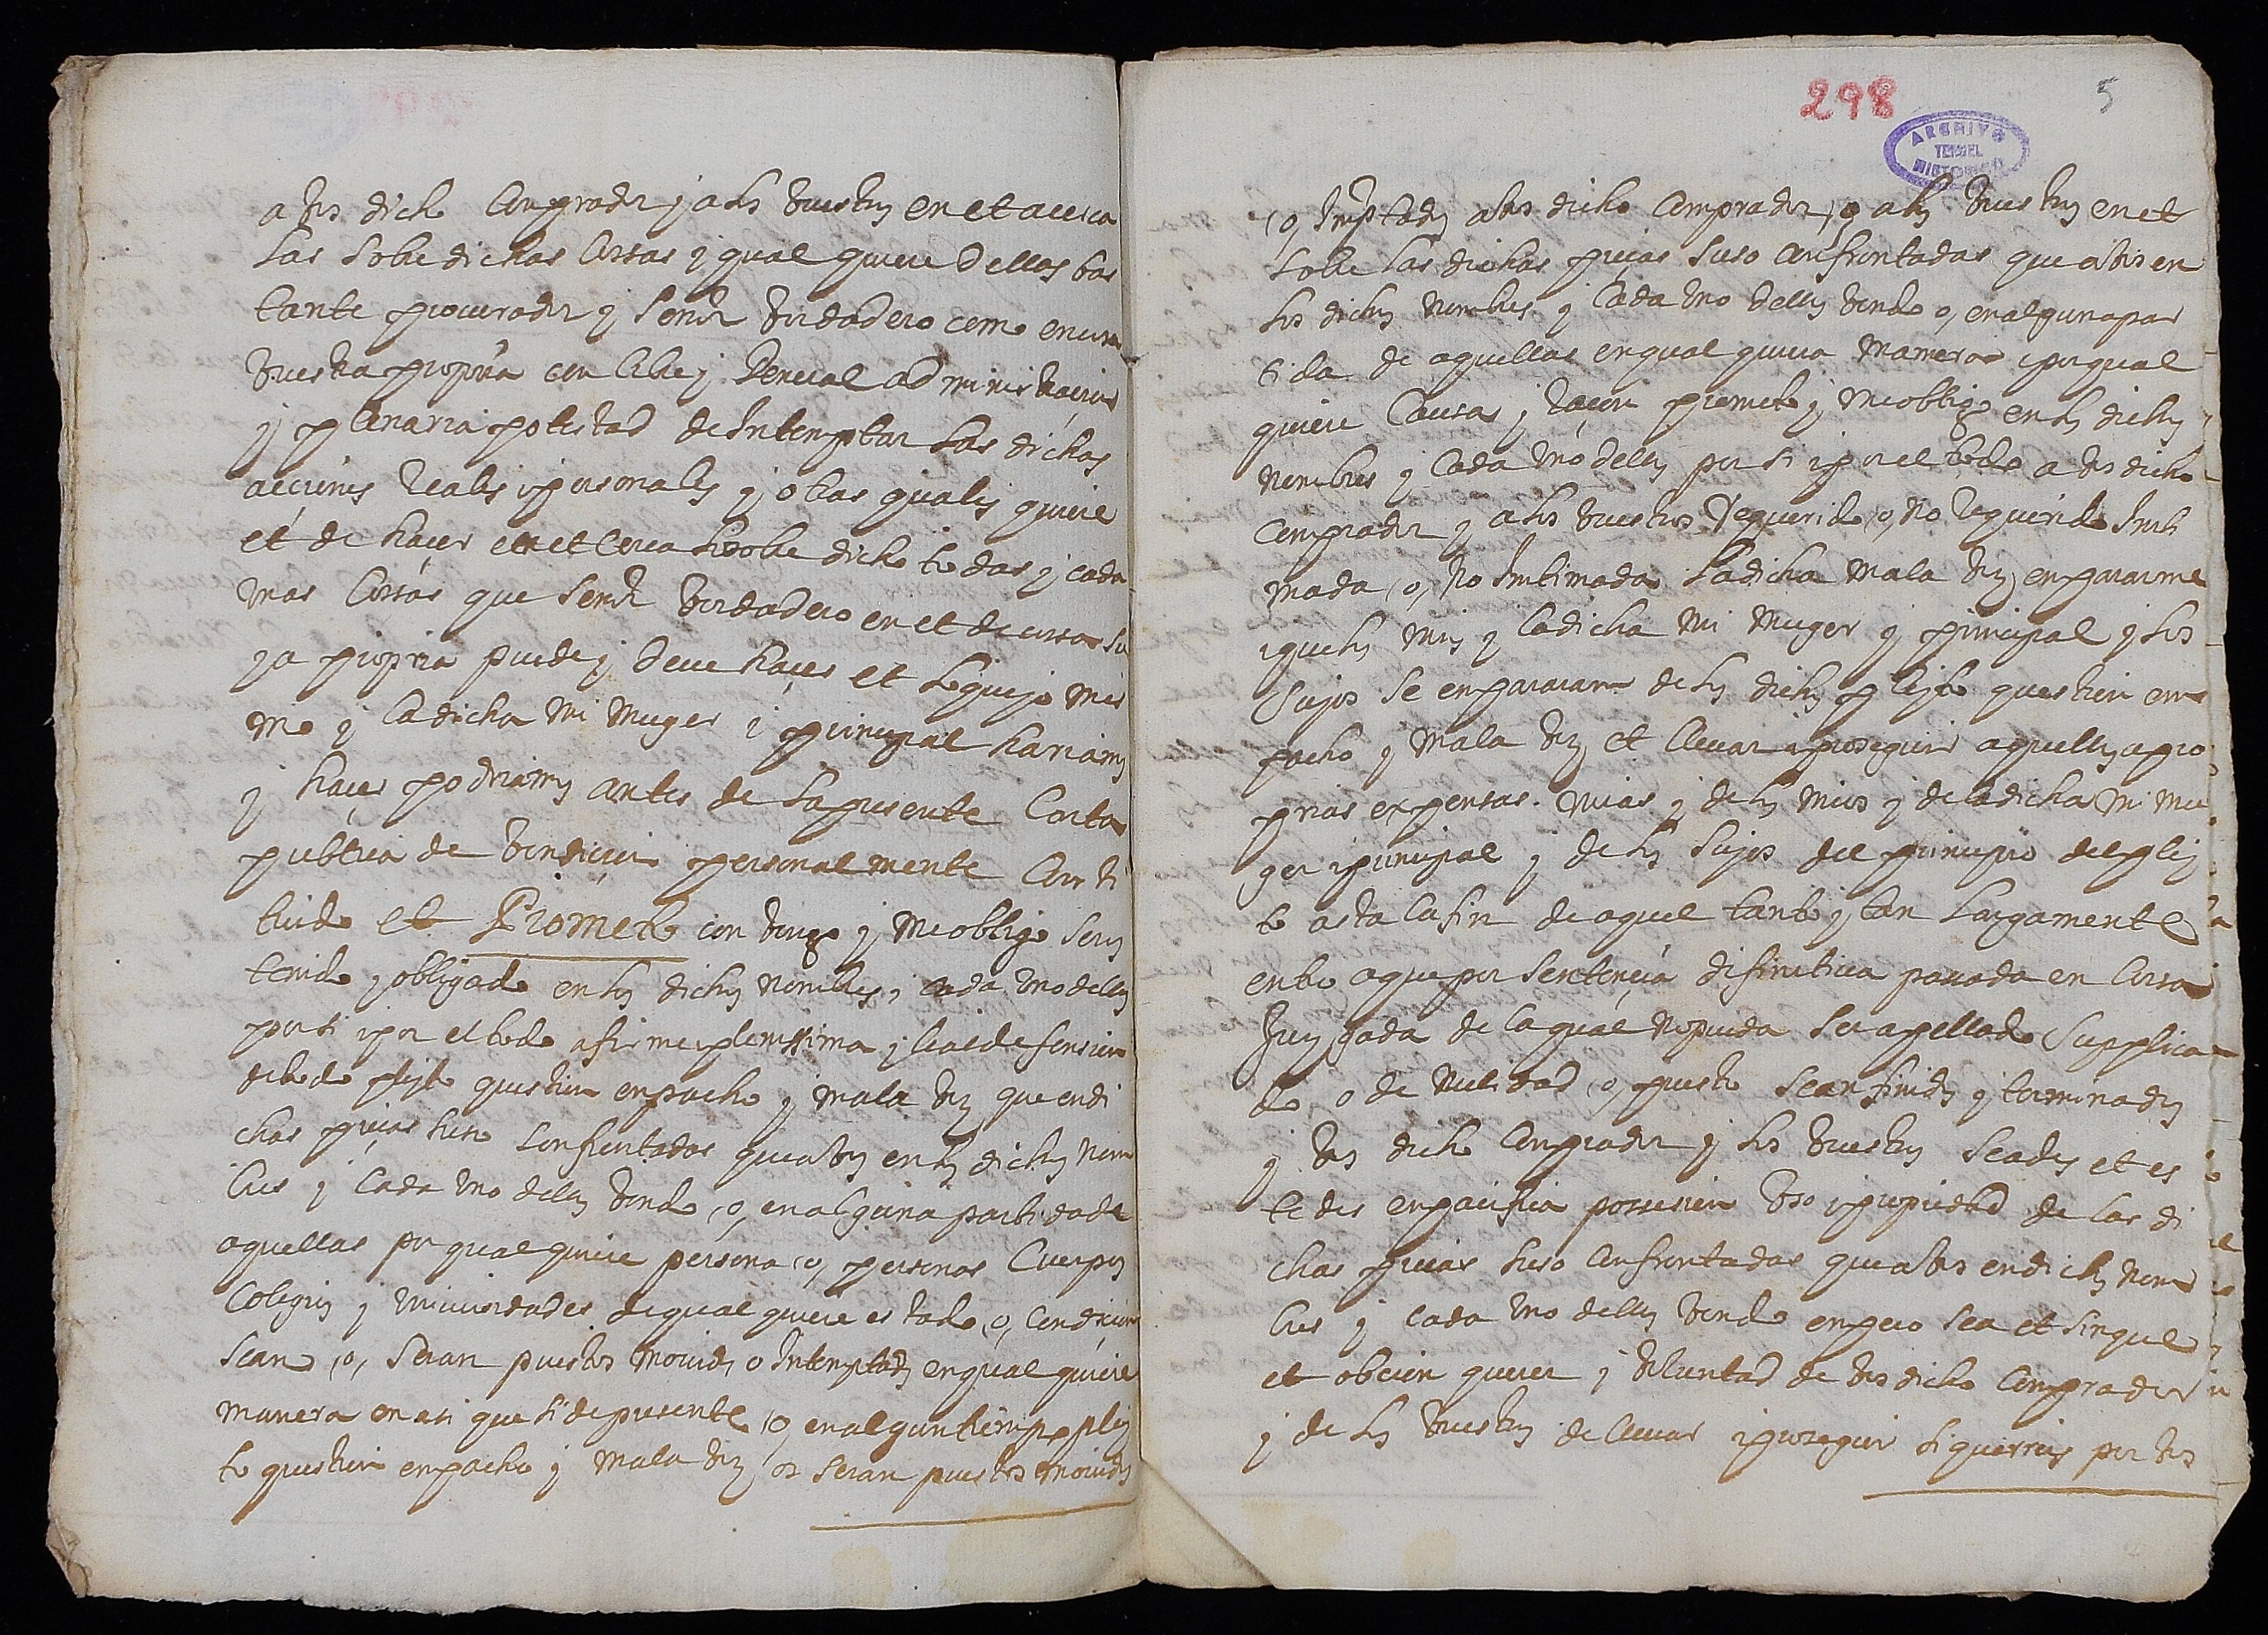 a vos dicho comprador y a los vuestros en et acerca
las sobredichas cosas y qual quiere dellas bas
tante procurador y señor verdadero como en cosa
vuestra propria con libre y general administracion
y plenaria potestad de Intemptar las dichas
acciones reales y personales y otras quales quiere
et de hacer en et cerca lo sobre dicho todas y cada
unas cosas que señor verdadero en et de cosa su
ya propria puede y deve hacer et lo que yo mis
mo y la dicha mi muger y principal hariamos
y hacer podriamos antes de la presente carta
publica de vendicion personalmente consti
tuido et Prometo convengo y me obligo seros
tenido y obligado en los dichos nombres y cada uno dellos
por si y por el todo a firme plenissima y leal defension
de todo pleyto question enpacho y mala voz que en di
chas pieças suso confrontadas que a vos en los dichos nom
bres y cada uno dellos vendo, o, en alguna partida de
aquellas por qual quiere persona, o, personas cuerpos
colegios y universidades de qual quiere estado, o, condicion
sean, o, seran puestos movidos o Intemptados en qual quiere
manera en asi que si de presente, o, en algun tiempo pley
to question enpacho y mala voz os seran puestos movidos
298
5
ARCHIVO
TERUEL
HISTORICO
, o, Intemptados a vos dicho comprador, o, a los vuestros en et
sobre las dichas pieças suso confrontadas que a vos en
los dichos nombres y cada uno dellos vendo o, en alguna par
tida de aquellas en qual quiera manera y por qual
quiere causa y raçon prometo y me obligo en los dichos
nombres y cada uno dellos por si y por el todo a vos dicho
comprador y a los vuestros requerido, o, no requerido Inti
mada, o, no Intimada la dicha mala voz enpararme
y que los mios y la dicha mi muger y principal y los
suyos se enpararan de los dichos pleyto question em
pacho y mala voz et llevar y proseguir aquellos a pro
prias expensas mias y de los mios y de la dicha mi mu
ger y principal y de los suyos del principio del pley
to asta la fin de aquel tanto y tan largamente
entro a que por sentencia difinitiva passada en cosa
Juzgada de la qual no pueda ser apellado supplica
do o de nulidad, o, puesto sean finidos y terminados
y vos dicho comprador y los vuestros seades et es
tedes en pacifica possession uso y propiedad de las di
chas pieças suso confrontadas que a vos en dichos nom
bres y cada uno dellos vendo enpero sea et finque
et obcion querer y voluntad de vos dicho comprador
y de los vuestros de llevar y proseguir si querreis por vos